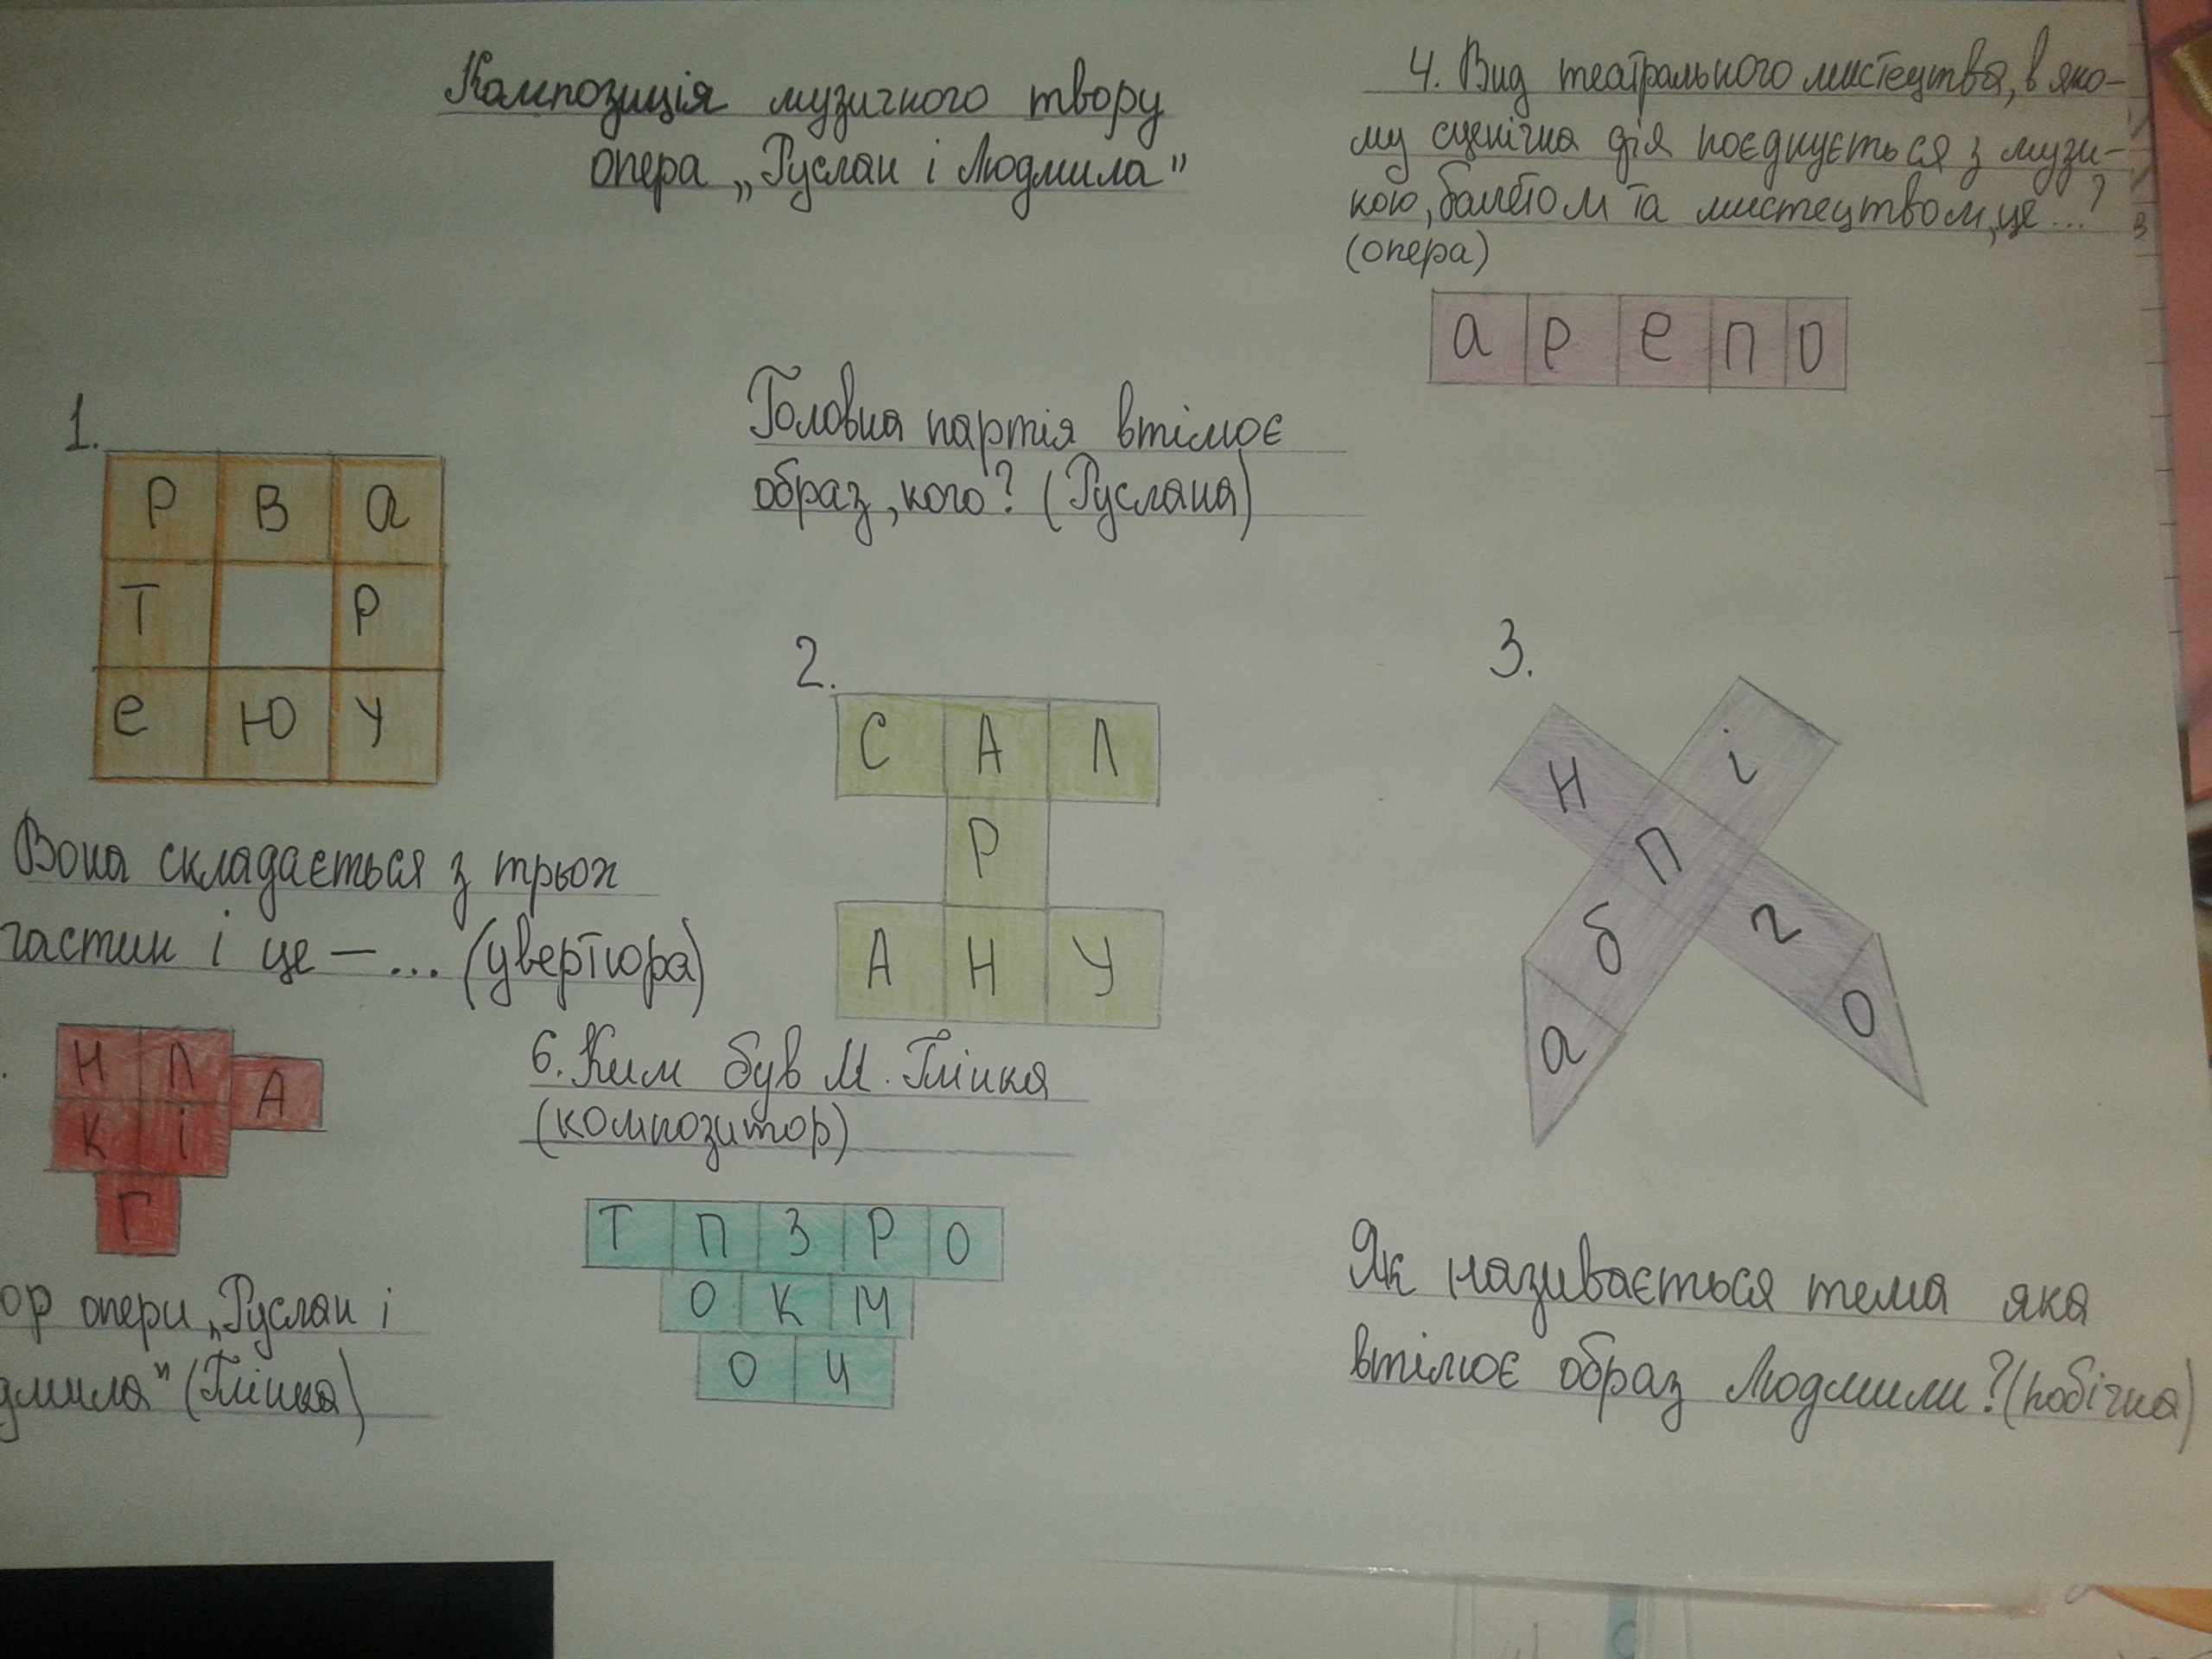 Композиція музичного твору
опера „Руслан і Людмила"
4. Вид театрального мистецтва, в яко-
му сценічна дія поєднується з музи-
кою, балетом та мистецтвом, це...?
(опера)
а р е п о
1.
Р В а
Т Р
е Ю у
Вона складається з трьох
частин і це – ... (увертюра)
Головна партія втілює
образ, кого? (Руслана)
2.
С А Л
Р
А Н У
3.
н і
п
б г
а о
Як називається тема яка
втілює образ Людмили? (побічна)
Н Л А
К І
Г
ор опери „Руслан і
дмила" (Глінка)
6. Ким був М. Глінка
(композитор)
Т П З Р О
О К М
О И